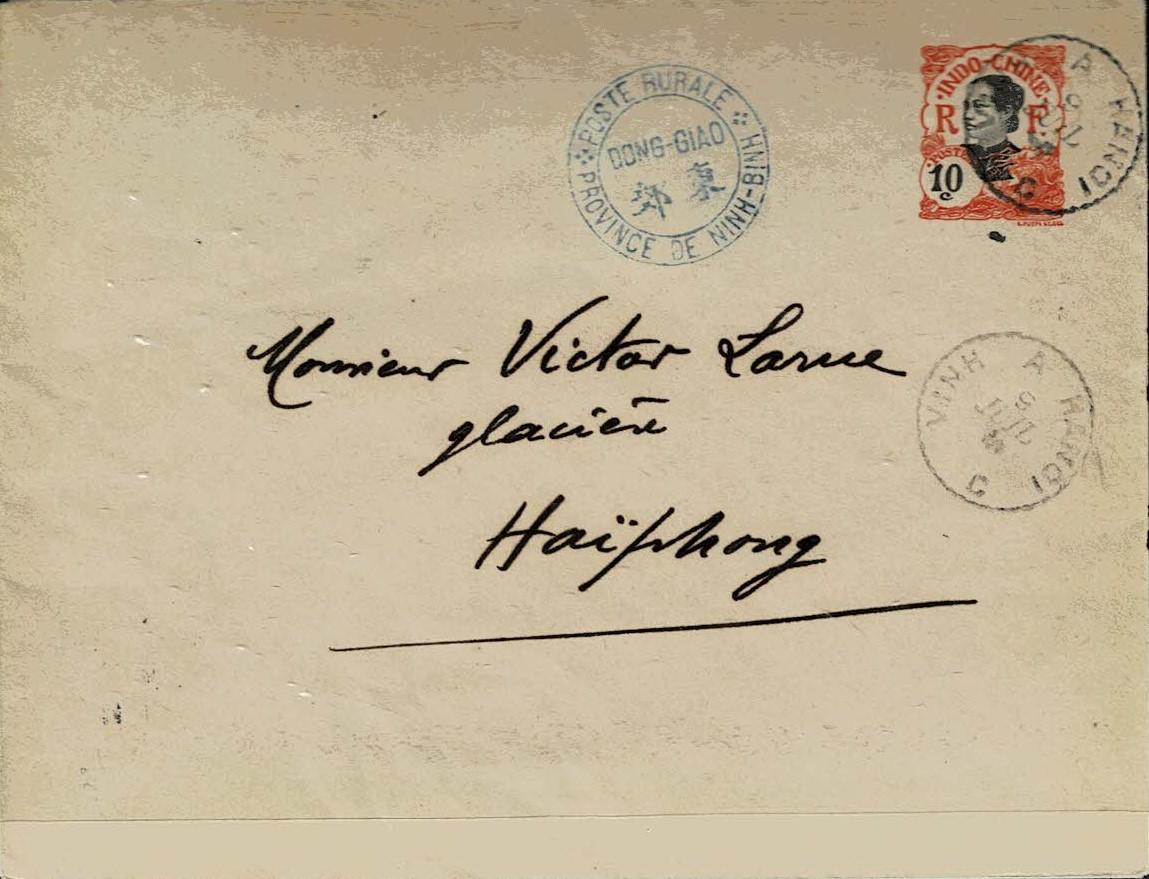 POSTE RURALE
DONG-GIAO
東郊
PROVINCE DE NINH-BINH
INDO-CHINE
R F.
POSTE
10 c
A HANOI
9
JUIL
C
Monsieur Victor Larue
glacière
Haïphong
VINH A HANOI
9
JUIL
C